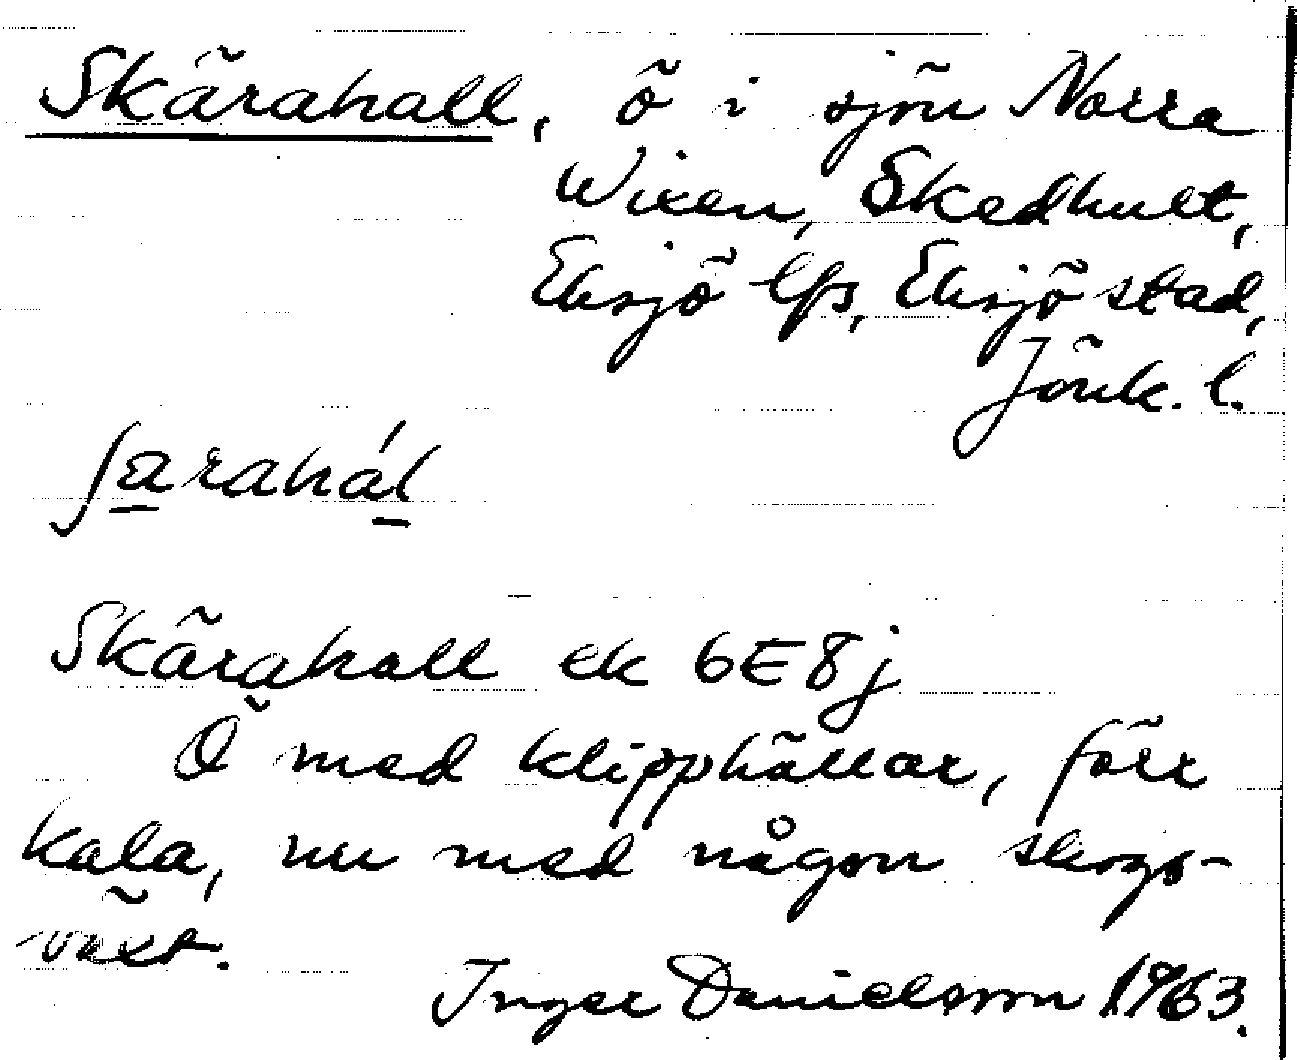 Skärahall, ö i sjön Norra
Wixen, Skedhult,
Eksjö lfs, Eksjö stad,
Jönk. l.
ʃarahál
Skärahall ek 6E8j
Ö med klipphällar, förr
kala, nu med någon skogs-
växt.
Inger Danielsson 1963.